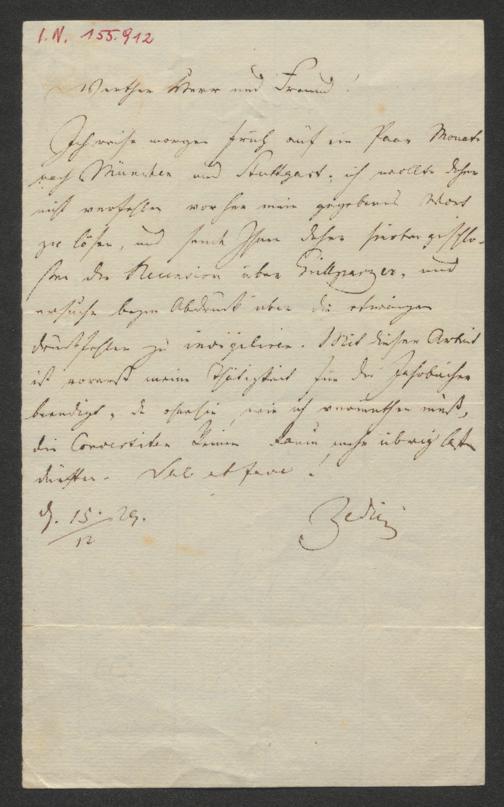 I.N. 155.912
Werther Herr und Freund!
Ich reise morgen früh auf ein Paar Monate
nach München und Stuttgart; ich wollte daher
nicht verfehlen vorher mein gegebenes Wort
zu lösen, und sende Ihnen daher hierbei geschlo-
ßen die Recension über Grillparzer, und
ersuche beym Abdruck über die etwaigen
Druckfehler zu invigiliren. Mit dieser Arbeit
ist vorerst meine Thätigkeit für die Jahrbücher
beendigt, da ohnehin, wie ich vermuthen muß,
die keinen Raum mehr übrig laßen
dürften. Vale et fave!
d. 15./12 29.
Zedlitz